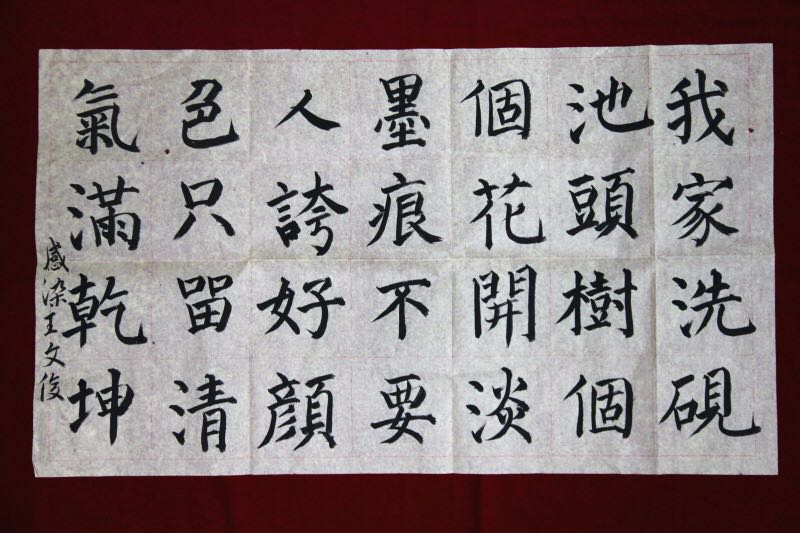 我家洗硯
池頭樹個
個花開淡
墨痕不要
人誇好顔
色只留清
氣滿乾坤
感染王文俊